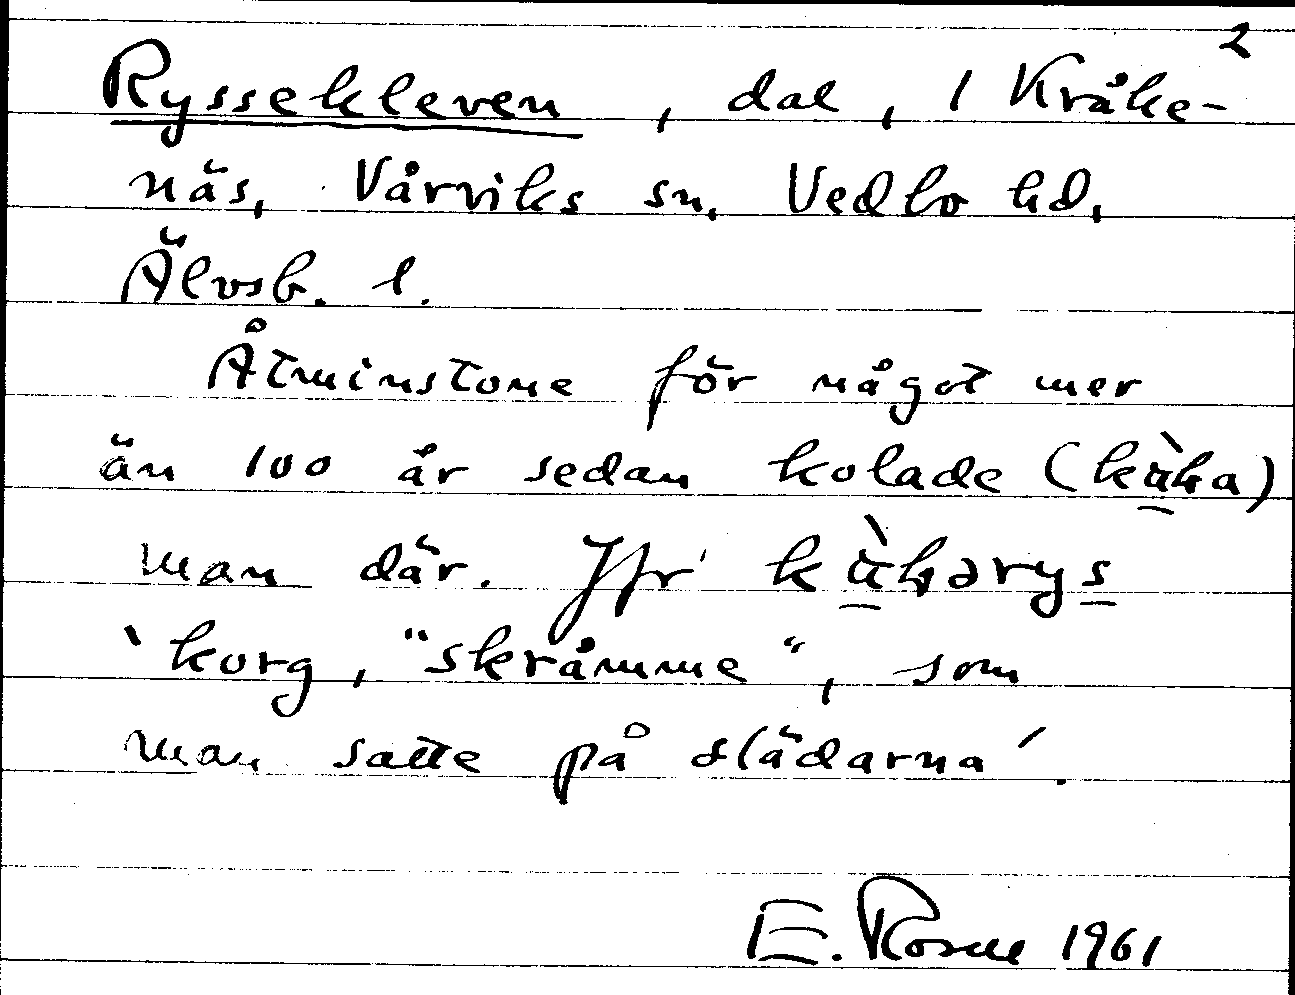 2
Ryssekleven, dal, 1 Kråke-
näs, Vårviks sn, Vedbo hd,
Älvsb. l.
Åtminstone för något mer
än 100 år sedan kolade
man där. Jfr
'korg, "skråmme", som
man satte på slädarna'.
E. 1961